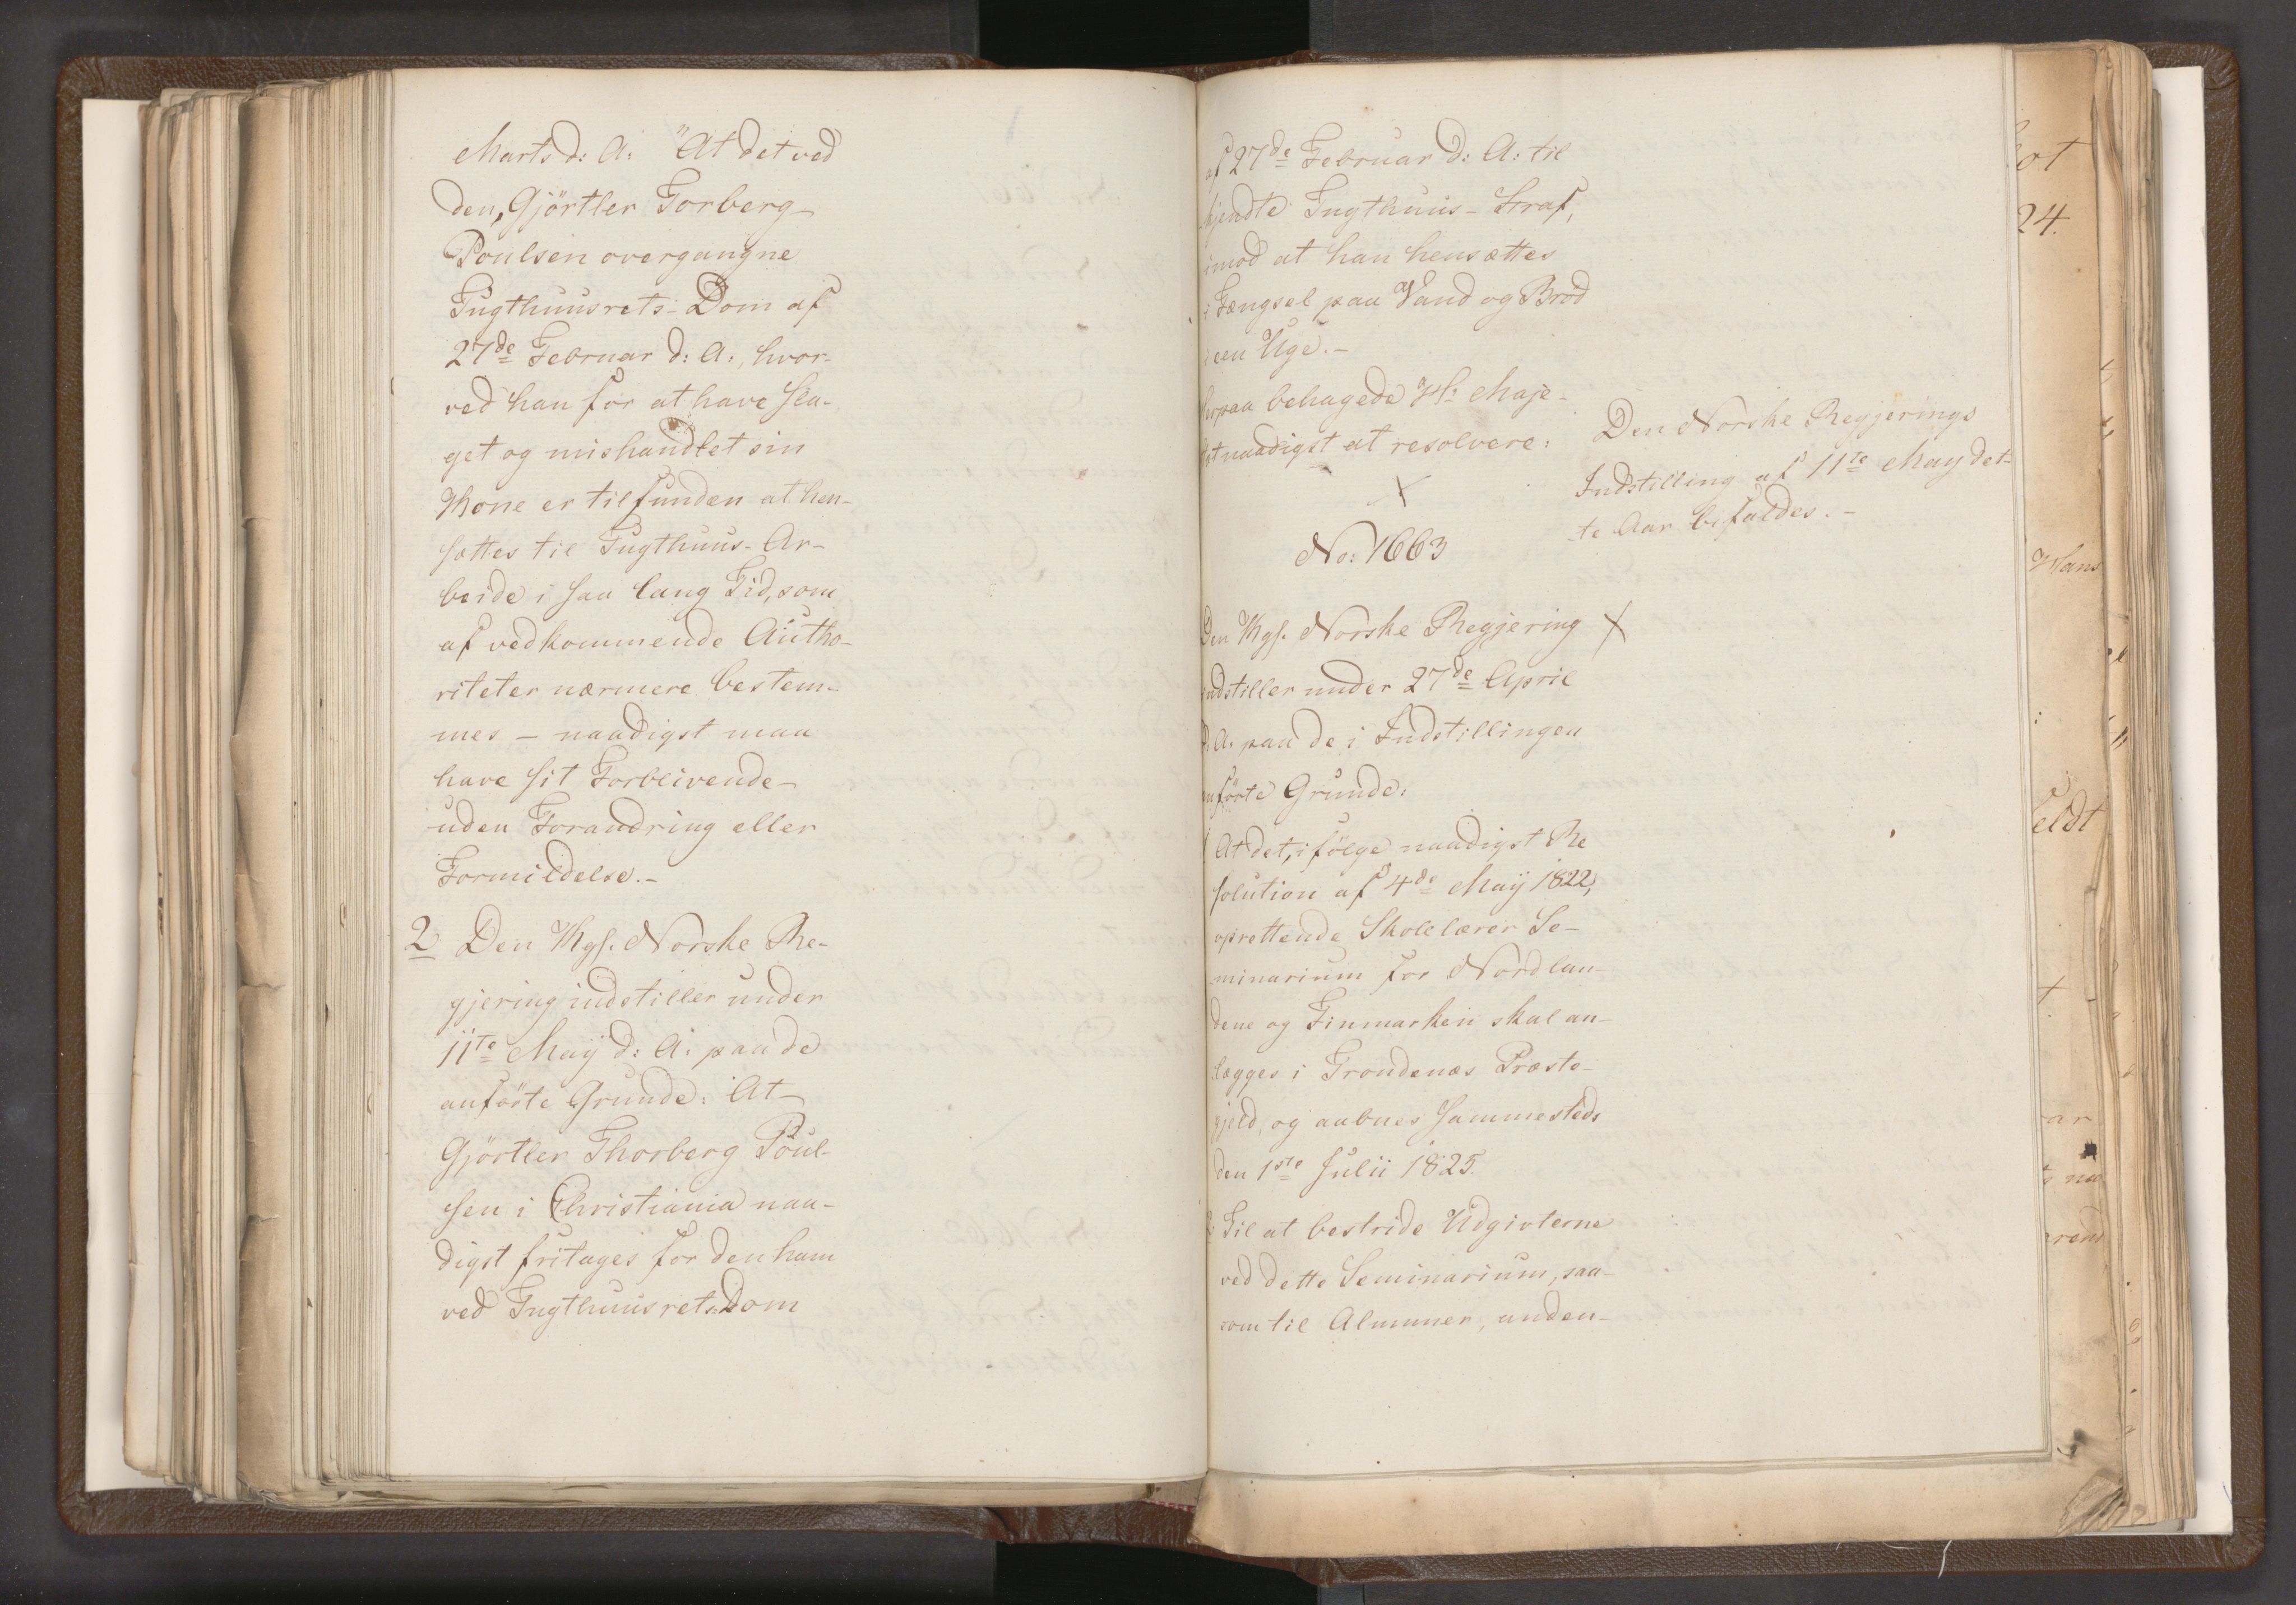 Marts d: A: "At det ved
den, Gjörtler Torberg
Poulsen overgangne
Tugthuusrets-Dom af
27de Februar d: A:, hvor-
ved han for at have sla-
get og mishandlet sin
Kone er tilfunden at hen-
sættes til Tugthuus-Ar-
beide i saa lang Tid, som
af vedkommende Autho-
riteter nærmere bestem-
mes - naadigst maa
have sit Forblivende
uden Forandring eller
Formildelse.-
2 Den Kgs. Norske Re-
gjering indstiller under
11te May d: A: paa de
anförte Grunde: At
Gjörtler Thorberg Poul-
sen i Christiania naa-
digst fritages for den ham
ved Tugthuusrets-Dom
af 27de Februar d: A: til
kjendte Tugthuus-Straf,
imod at han hensættes
i Fængsel paa Vand og Bröd
i een Uge.-
paa behagede H: Maje-
naadigst at resolvere:
Den Norske Regjerings
Indstilling af 11te May det-
te Aar bifaldes.-
No: 1663
Den Kgs. Norske Regjering
indstiller under 27de April
d: A. paa de i Indstillingen
anförte Grunde:
At det, ifölge naadigst Re
solution af 4de May 1822,
oprettende Skolelærer Se-
minarium for Nordlan-
dene og Finmarken skal an-
lægges i Trondenæs Præste-
gjeld, og aabnes sammesteds
den 1ste Julii 1825.
Til at bestride Udgivterne
ved dette Seminarium, saa-
som til Alumner, unden-
24.
Hans
eldt